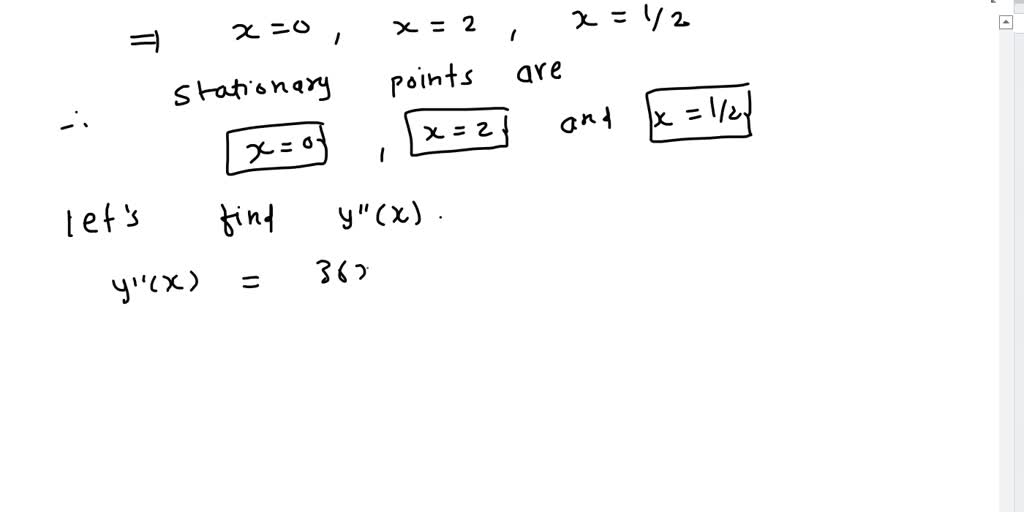 ⇒ x = 0 , x = 2 , x = 1/2
∴ stationary points are
x = 0 , x = 2 and x = 1/2
let's find y''(x) .
y''(x) = 36x